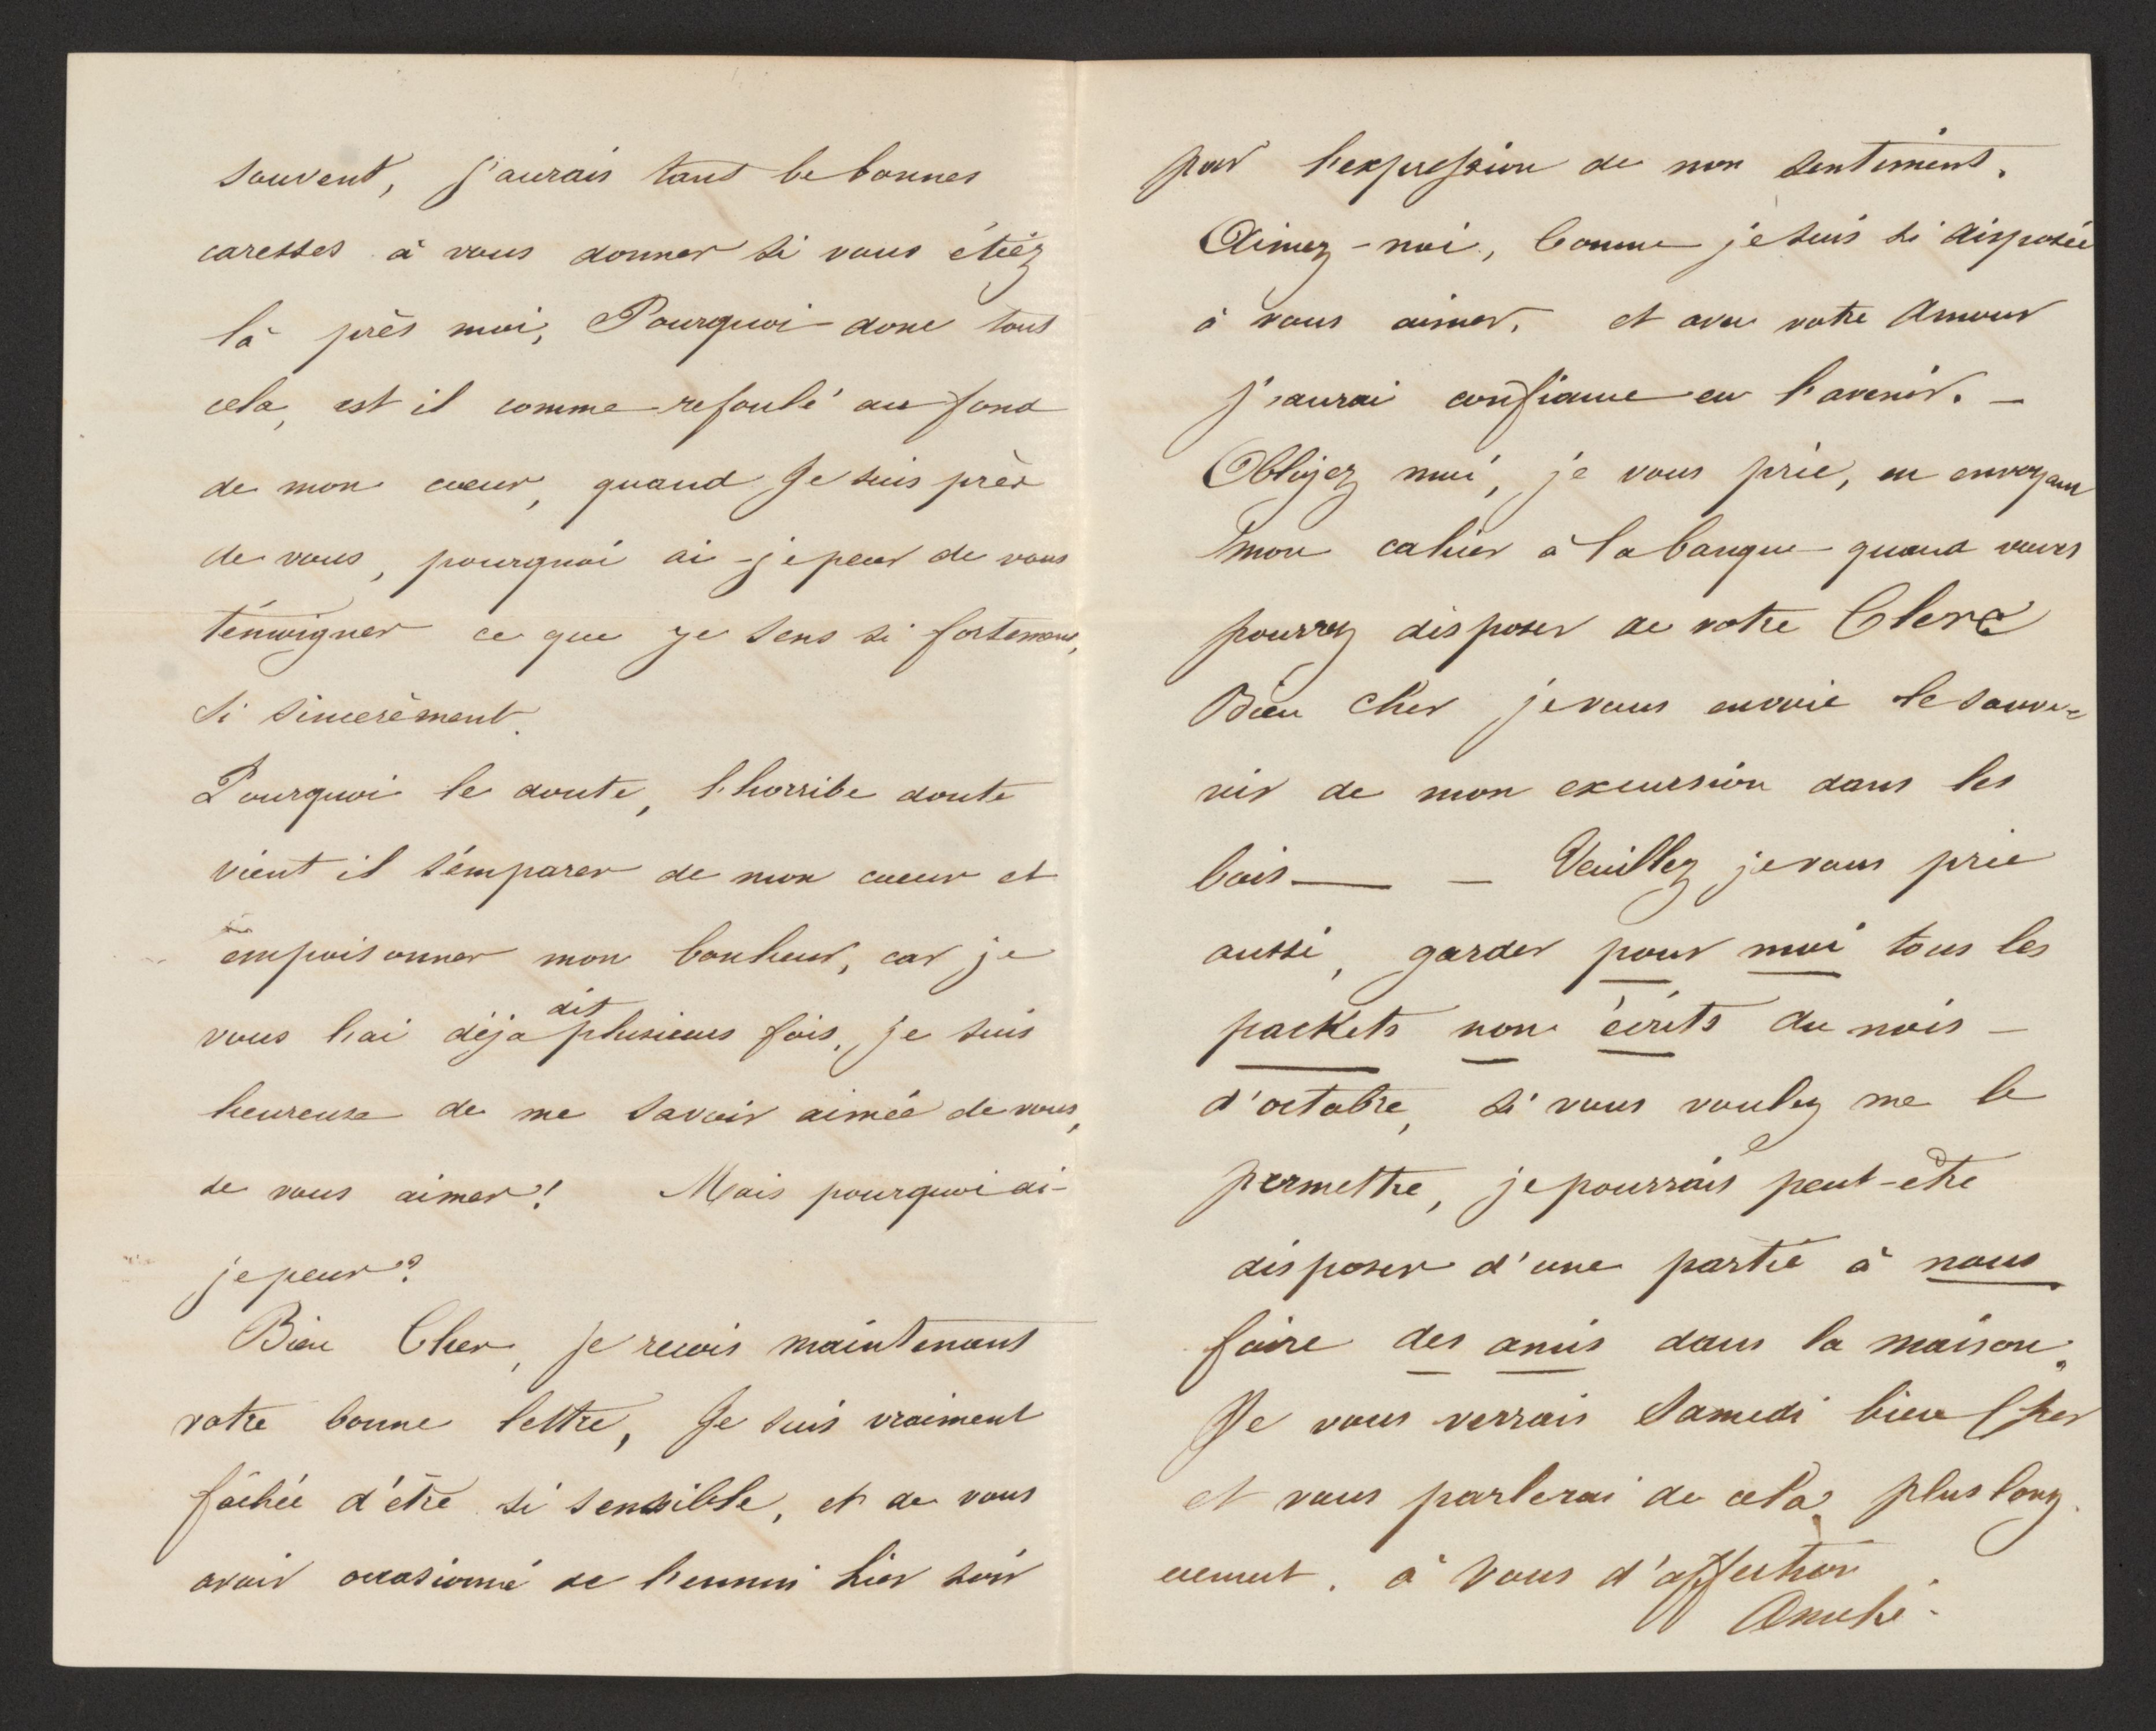 souvent, j'aurais tant be bonnes
caresses à vous donner si vous étiéz
là près moi, Pourquoi donc tout
cela, est il comme refoulé au fond
de mon cœur, quand Je suis près
de vous, pourquoi ai-je peur de vous
témoigner ce que je sens si fortement,
si sincerèment.
Pourquoi le doute, l'horrible doute
vient il s'emparer de mon cœur et
empoisonner mon bonheur, car je
vous l'ai déja dit plusieurs fois, je suis
heureuse de me savoir aimée de vous,
de vous aimer! Mais pourquoi ai-
je peur?
Bien Cher, je recois maintenant
votre bonne lettre, Je suis vraiment
fâchée d'être si sensible, et de vous
avoir occasionné de l'ennui hier soir
par l'expression de mon sentiment.
Aimez-moi, Comme je suis si disposée
à vous aimer, et avec votre Amour
j'aurai confiance en l'avenir. —
Obligez moi, je vous prie, en envoyant
mon cahier à la banque quand vous
pourrez disposer de votre Clerc
Bien Cher je vous envoie le souve=
nir de mon excursion dans les
bois — — Veuillez je vous prie
aussi, garder pour moi tous les
packets non écrits du mois —
d'octobre, si vous voulez me le
permettre, je pourrais peut-etre
disposer d'une partie à nous
faire des amis dans la maison.
Je vous verrais Samedi bien Cher
et vous parlerai de cela plus long.
uement. à Vous d'affection